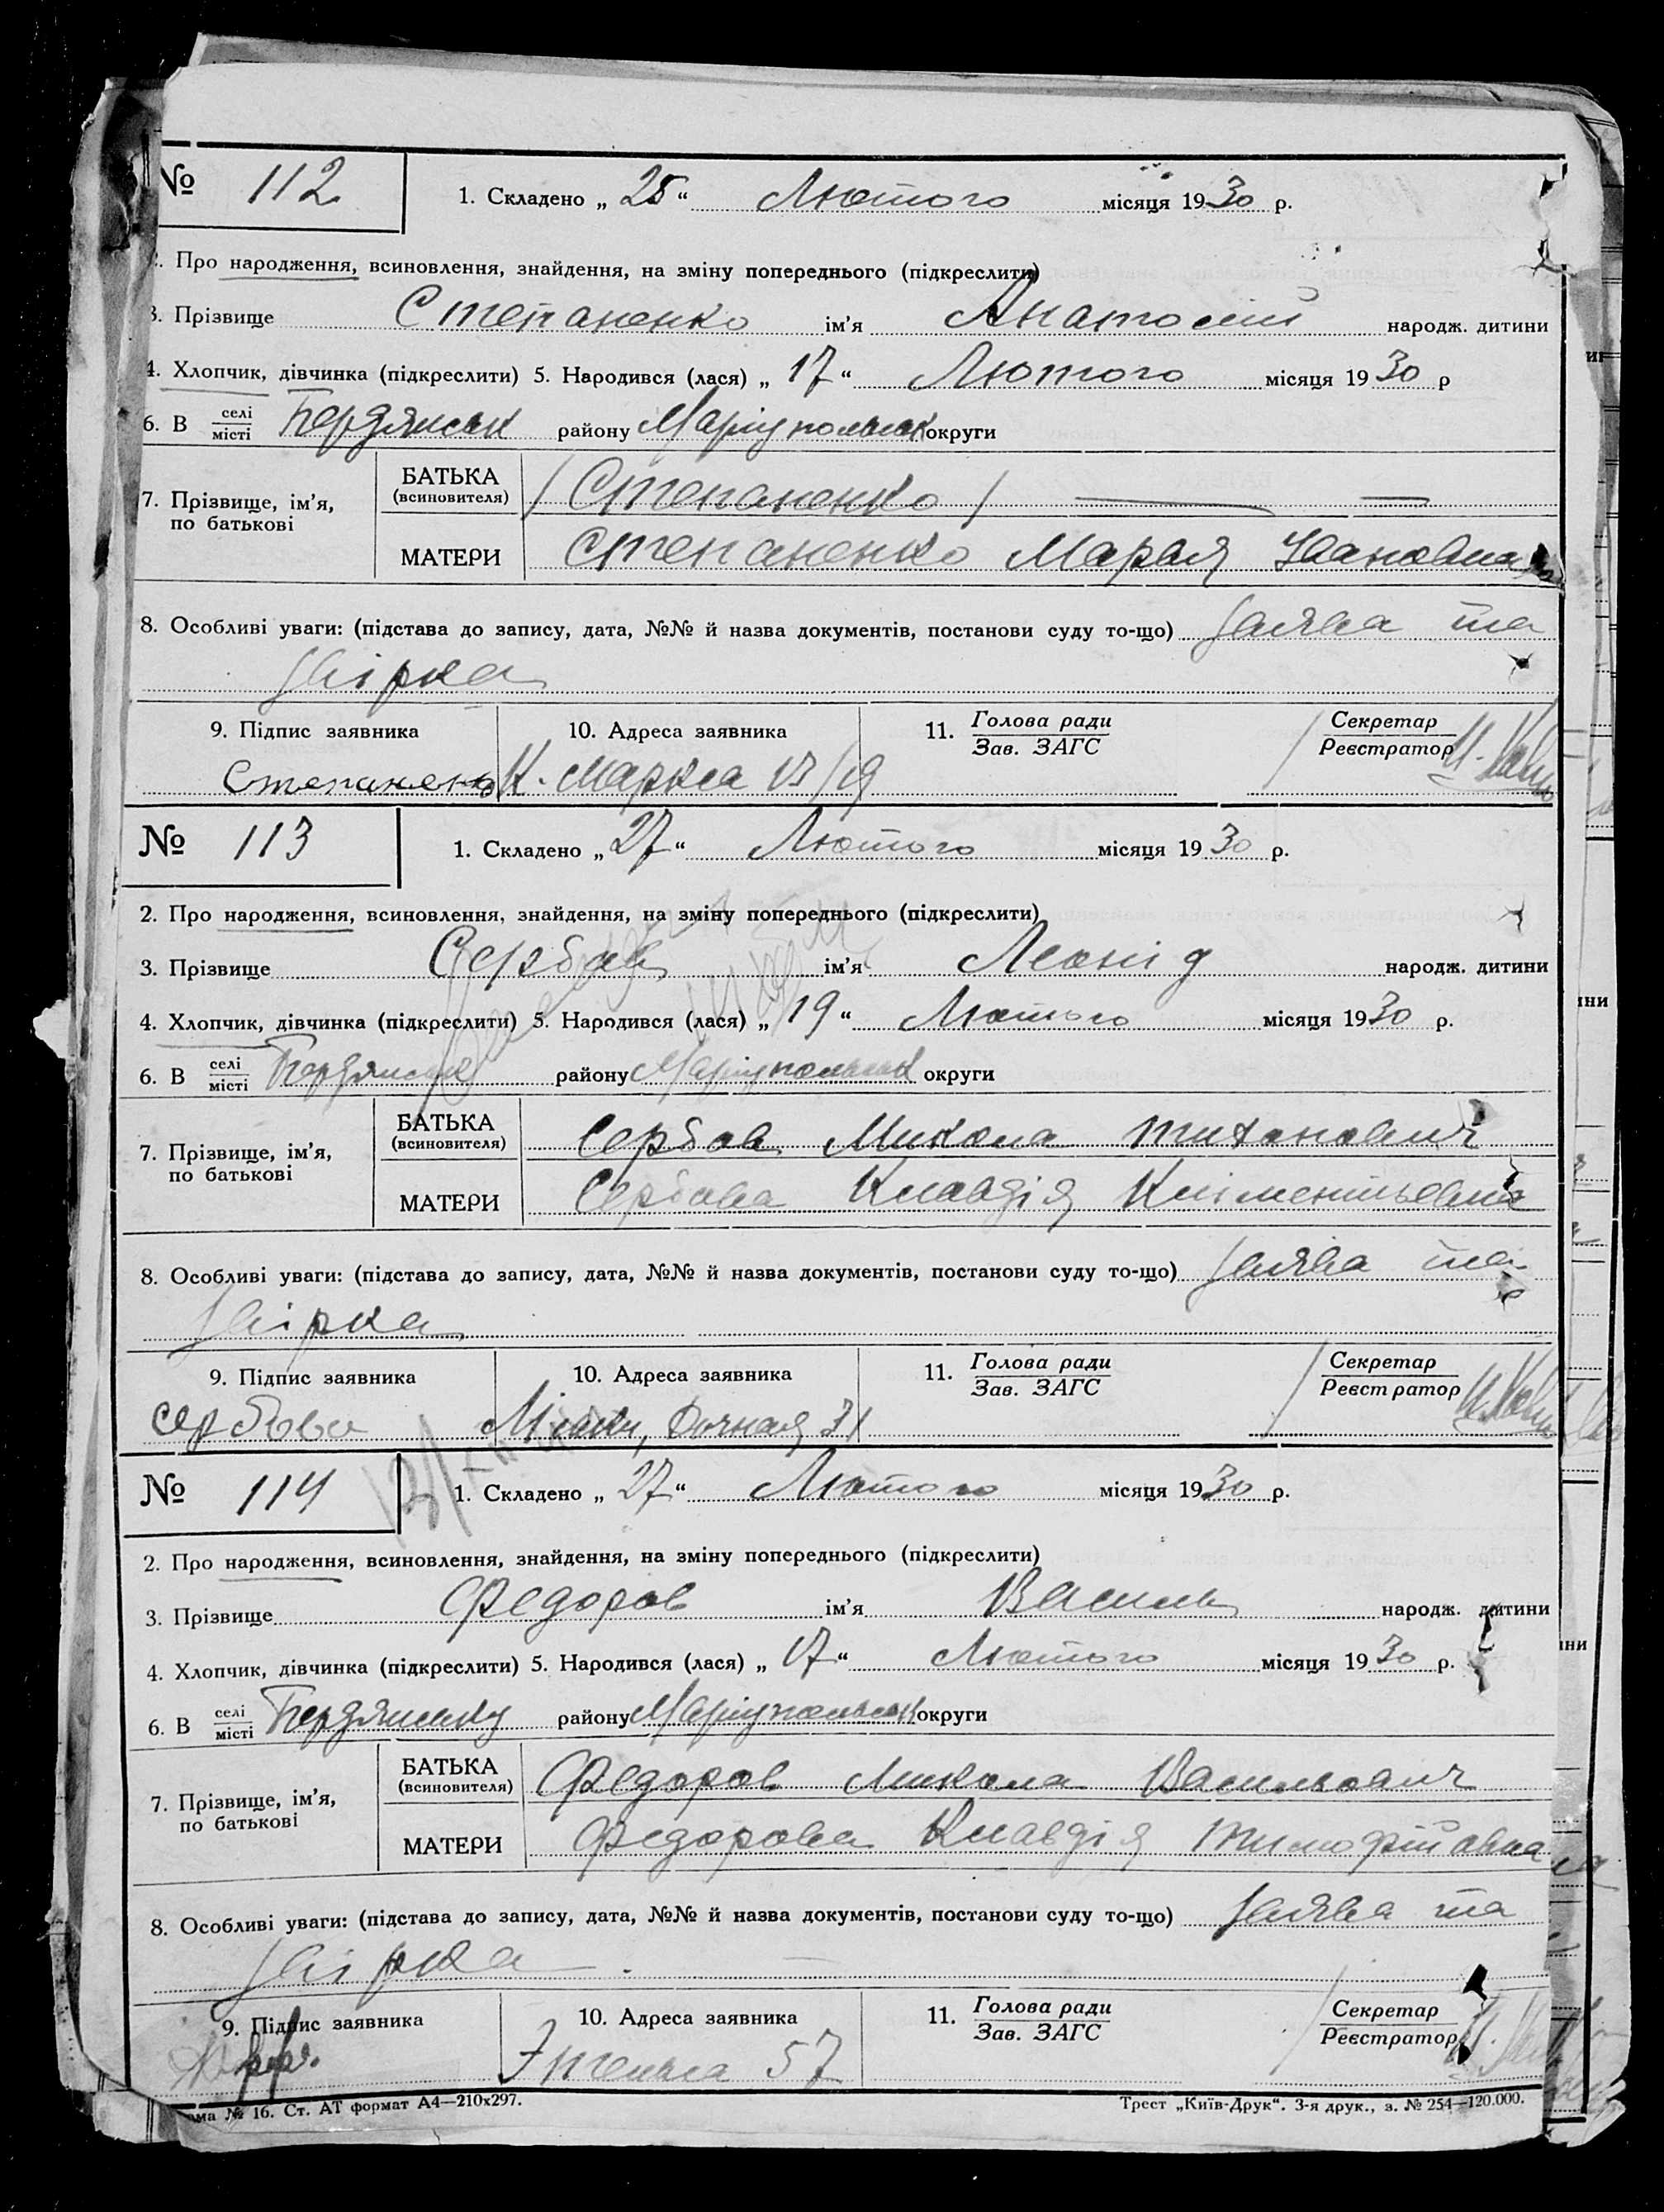 № 112 1. Складено „ 25 “ Лютого місяця 1930 р.
2. Про народження, всиновлення, знайдення, на зміну попереднього (підкреслити)
3. Прізвище Степаненко ім'я Анатолій народж. дитини
4. Хлопчик, дівчинка (підкреслити) 5. Народився (лася) „ 17 “ Лютого місяця 1930 р
6. В селі/місті Бердянськ району Маріупольськ округи
7. Прізвище, ім'я, по батькові
БАТЬКА (всиновителя) / Степаненко /
МАТЕРИ Степаненко Марія Івановна
8. Особливі уваги: (підстава до запису, дата, №№ й назва документів, постанови суду то-що) Заява та
звірка
9. Підпис заявника 10. Адреса заявника 11. Голова ради/Зав. ЗАГС Секретар/Реєстратор
Степаненко К. Маркса 13/19
№ 113 1. Складено „ 27 “ Лютого місяця 1930 р.
2. Про народження, всиновлення, знайдення, на зміну попереднього (підкреслити)
3. Прізвище Сербов ім'я Леонід народж. дитини
4. Хлопчик, дівчинка (підкреслити) 5. Народився (лася) „ 19 “ Лютого місяця 1930 р.
6. В селі/місті Бердянськ району Маріупольськ округи
7. Прізвище, ім'я, по батькові
БАТЬКА (всиновителя) Сербов Микола Тихонович
МАТЕРИ Сербова Клавдія Кліментьевна
8. Особливі уваги: (підстава до запису, дата, №№ й назва документів, постанови суду то-що) Заява та
звірка
9. Підпис заявника 10. Адреса заявника 11. Голова ради/Зав. ЗАГС Секретар/Реєстратор
Сербова 31
№ 114 1. Складено „ 27 “ Лютого місяця 1930 р.
2. Про народження, всиновлення, знайдення, на зміну попереднього (підкреслити)
3. Прізвище Федоров ім'я Василь народж. дитини
4. Хлопчик, дівчинка (підкреслити) 5. Народився (лася) „ 17 “ Лютого місяця 1930 р.
6. В селі/місті Бердянську району Маріупольськ округи
7. Прізвище, ім'я, по батькові
БАТЬКА (всиновителя) Федоров Микола Васильович
МАТЕРИ Федорова Клавдія Тимофійовна
8. Особливі уваги: (підстава до запису, дата, №№ й назва документів, постанови суду то-що) Заява та
звірка
9. Підпис заявника 10. Адреса заявника 11. Голова ради/Зав. ЗАГС Секретар/Реєстратор
Энгельса 57
№ 16. Ст. АТ формат А4—210x297. Трест „Київ-Друк“. 3-я друк., з. № 254—120.000.